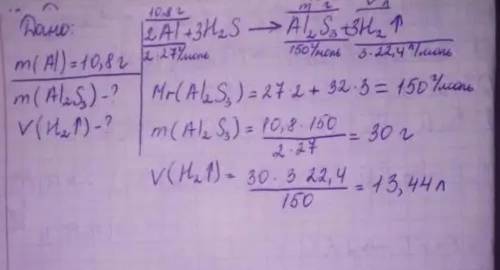 Дано:
m(Al)=10,8г
m(Al₂S₃)-?
V(H₂↑)-?
10,8г m г V л
2Al+3H₂S → Al₂S₃+3H₂↑
2·27г/моль 150г/моль 3·22,4л/моль
Mr(Al₂S₃)=27·2+32·3=150г/моль
m(Al₂S₃)=10,8·150/2·27=30г
V(H₂↑)=30·3 22,4/150=13,44л